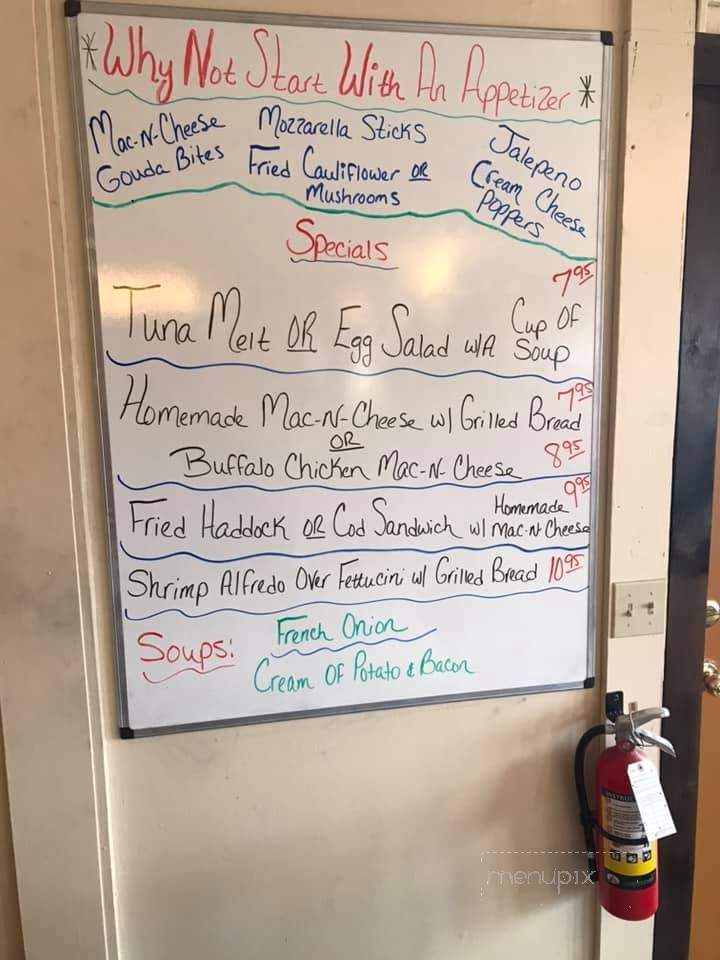 *Why Not Start With An Appetizer*
Mac-N-Cheese
Gouda Bites
Mozzarella Sticks
Fried Cauliflower OR
Mushrooms
Jalepeno
Cream Cheese
Poppers
Specials
7.95
Tuna Melt OR Egg Salad w/A Cup Of
Soup
7.95
Homemade Mac-N-Cheese w/ Grilled Bread
OR
Buffalo Chicken Mac-N-Cheese 8.95
9.95
Fried Haddock OR Cod Sandwich w/ Homemade
Mac-N-Cheese
Shrimp Alfredo Over Fettucini w/ Grilled Bread 10.95
Soups: French Onion
Cream Of Potato & Bacon
menupix